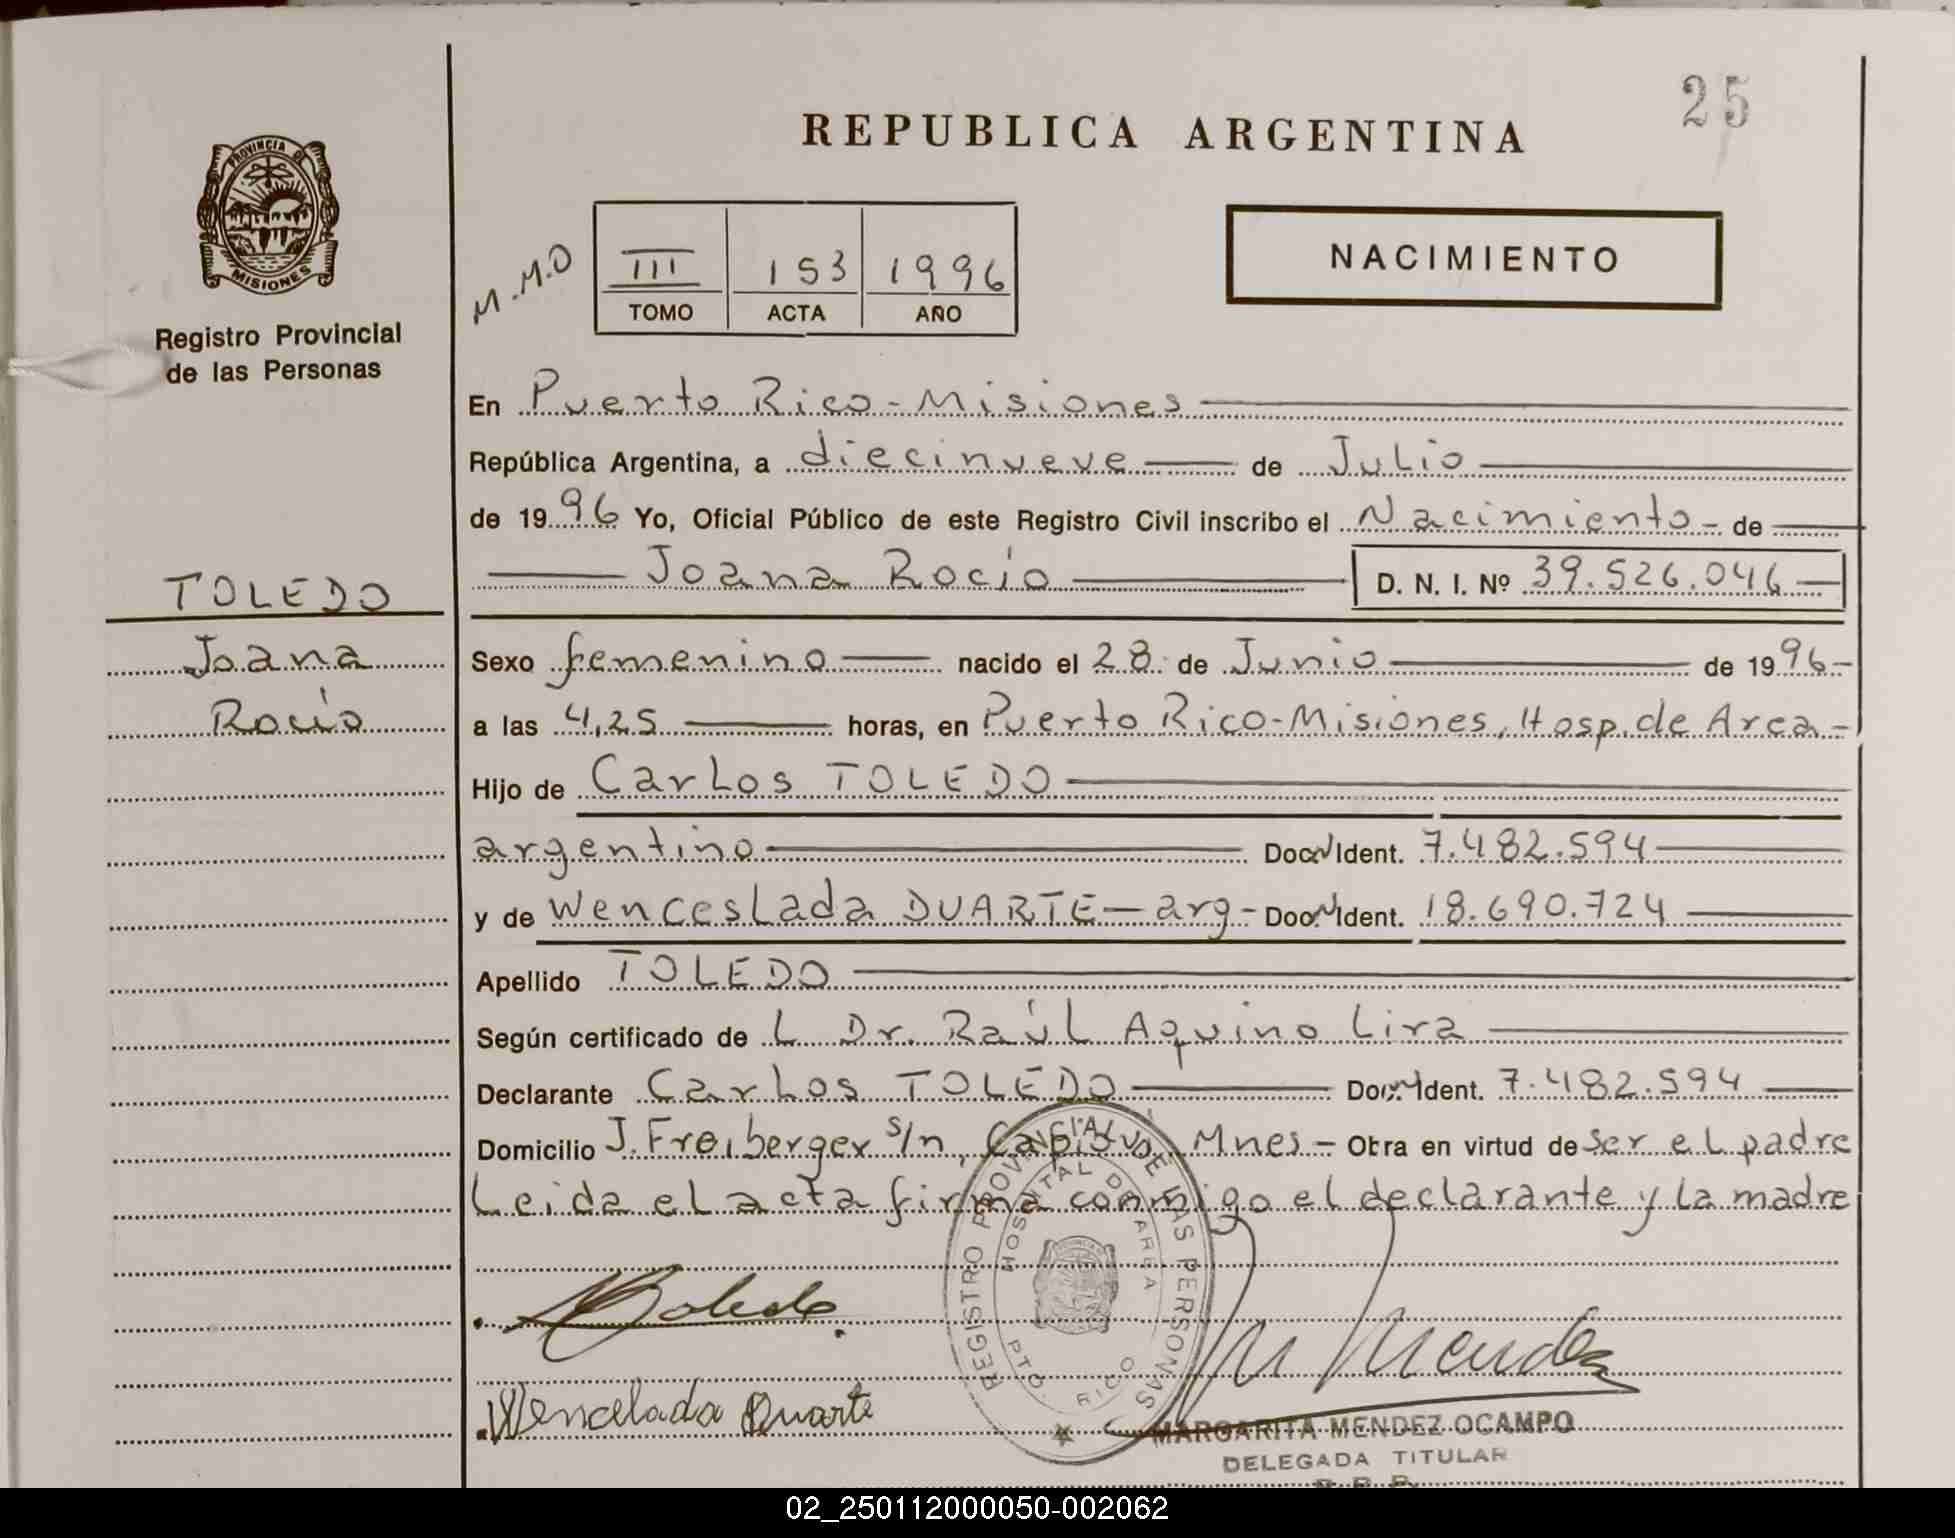 25
REPUBLICA ARGENTINA
PROVINCIA DE
MISIONES
Registro Provincial
de las Personas
M.M.O
III 153 1996
TOMO ACTA AÑO
NACIMIENTO
En Puerto Rico - Misiones
República Argentina, a diecinueve de Julio
de 1996 Yo, Oficial Público de este Registro Civil inscribo el Nacimiento - de
Joana Rocío D. N. I. Nº 39.526.046
TOLEDO
Joana
Rocío
Sexo femenino nacido el 28 de Junio de 1996-
a las 4,25 horas, en Puerto Rico-Misiones, Hosp. de Area-
Hijo de Carlos TOLEDO
argentino Doc. Ident. 7.482.594
y de Wenceslada DUARTE - arg- Doc. Ident. 18.690.724
Apellido TOLEDO
Según certificado de L Dr. Raúl Aquino Lira
Declarante Carlos TOLEDO Doc. Ident. 7.482.594
Domicilio J. Freiberger s/n, Mnes - Obra en virtud de ser el padre
Leida el acta firma conmigo el declarante y la madre
REGISTRO PROVINCIAL DE LAS PERSONAS
HOSPITAL DE AREA
PTO. RICO
Toledo
Wencelada Duarte
M Mendez
MARGARITA MENDEZ OCAMPO
DELEGADA TITULAR
02_250112000050-002062